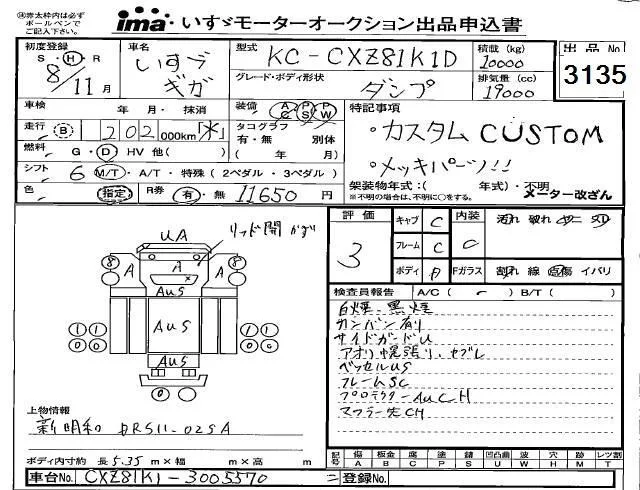 ※赤太枠内は必ず
ボールペンで
ご記入下さい。
ima いすゞモーターオークション出品申込書
初度登録
S・H・R
8/11月
車名
いすゞ
ギガ
型式 KC-CXZ81K1D
グレード・ボディ形状
ダンプ
積載 (kg)
10000
排気量 (cc)
19000
出品No
3135
車検 年 月・抹消
走行 B 1202000km
燃料 G・D HV 他( )
シフト 6 M/T・A/T・特殊 (2ペダル・3ペダル)
色 指定 R券 有・無 11650 円
装備 AC PS PW
タコグラフ
有・無 別体
( 年 月)
特記事項
・カスタム CUSTOM
・メッキパーツ!!
架装物年式:( 年式)・不明 メーター改ざん
※不明の場合は、不明に○をする。
評価
3
キャブ C
フレーム C
ボディ A
内装
C
汚れ 破れ
Fガラス 割れ 線 点傷 イバリ
UA
A
A
AUS
AUS
AUS
検査員報告 A/C( ) B/T( )
白煙・黒煙
カンバン有り
サイドガードU
ベッセルUS
フレームSC
プロテクターAUCH
上物情報
新明和 DR511-025A
ボディ内寸約 長 5.35 m×幅 m×高 m
記号 傷 板金 腐 塗 錆 凹凸曲 波 穴 跡 レツ割
A B C P S U W H M T
車台No. CXZ81K1-3005570
登録No.